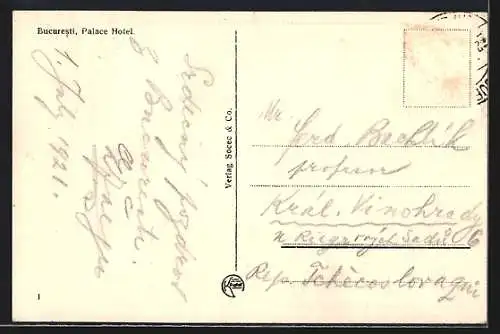 Bucureşti, Palace Hotel.
1. July 1921.
Srdečný pozdrav
z Bucuresti.
Verlag Socec & Co.
Mr.
Ferd Bachlík
profesor
Král. Vinohrady
n Riegrových Sadů 6
Rep. Tchècoslovaquie
1